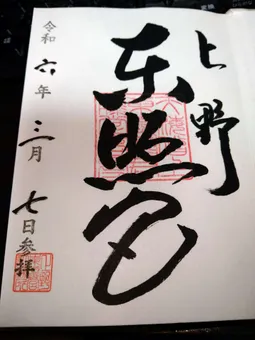 上野
東照宮
令和六年三月七日参拝